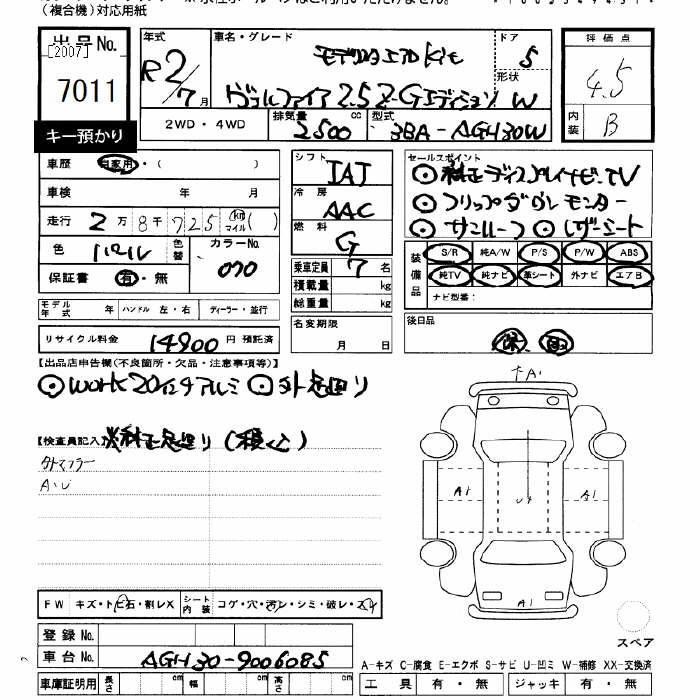 (複合機)対応用紙
出品No.
[2007]
7011
キー預かり
年式
R2/7月
車名・グレード
モデリスタエアロKit
ヴェルファイア 2.5 Z-Gエディション
ドア
5
形状
W
評価点
4.5
内装
B
2WD・4WD
排気量
2500 cc
型式
3BA-AGH30W
車歴 自家用・( )
車検 年 月
走行 2万8千725 (km マイル)( )
色 パール 色替 カラーNo. 070
保証書 有・無
シフト IAT
冷房 AAC
燃料 G
乗車定員 7 名
積載量 kg
総重量 kg
セールスポイント
◎純正ディスプレイナビ・TV
◎フリップダウンモニター
◎サンルーフ ◎レザーシート
装備品
S/R 純A/W P/S P/W ABS
純TV 純ナビ 革シート 外ナビ エアB
ナビ型番:
モデル年式 年 ハンドル 左・右 ディーラー・並行
リサイクル料金 14900 円 預託済
名変期限
月 日
後日品
保 取
【出品店申告欄(不良箇所・欠品・注意事項等)】
◎WORK20インチアルミ ◎外足廻り
【検査員記入】※純正足廻り(積込)
外マフラー
A・U
↑A1
A1 U4 A1
A1
FW キズ・トビ石・割レX シート内装 コゲ・穴・汚レ・シミ・破レ・スレ
登録No.
車台No. AGH30-9006085
車庫証明用 長さ cm 幅 cm 高さ cm
スペア
A-キズ C-腐食 E-エクボ S-サビ U-凹ミ W-補修 XX-交換済
工具 有・無 ジャッキ 有・無